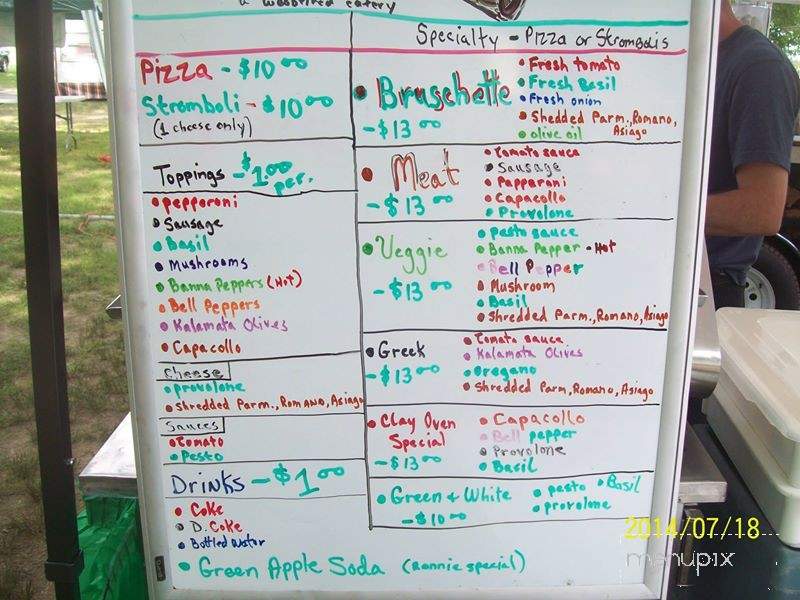 a woodfired eatery
Pizza - $10 00
Stromboli - $10 00
(1 cheese only)
Toppings - $1.00 per.
• pepperoni
• Sausage
• Basil
• Mushrooms
• Banna Peppers (Hot)
• Bell Peppers
• Kalamata Olives
• Capacollo
Cheese
• provolone
• Shredded Parm., Romano, Asiago
Sauces
• Tomato
• Pesto
Drinks - $1 00
• Coke
• D. Coke
• Bottled water
• Green Apple Soda (Ronnie special)
Specialty - Pizza or Strombolis
• Bruschette
- $13 00
• Fresh tomato
• Fresh Basil
• Fresh onion
• Shedded Parm., Romano, Asiago
• olive oil
• Meat
- $13 00
• Tomato sauce
• Sausage
• Papparoni
• Capacollo
• Provolone
• Veggie
- $13 00
• Pesto sauce
• Banna Pepper - Hot
• Bell Pepper
• Mushroom
• Basil
• Shredded Parm., Romano, Asiago
• Greek
- $13 00
• Tomato sauce
• Kalamata Olives
• oregano
• Shredded Parm, Romano, Asiago
• Clay Oven
Special
- $13 00
• Capacollo
• Bell pepper
• Provolone
• Basil
• Green + White
- $10 00
• pesto • Basil
• provolone
2014/07/18
menupix